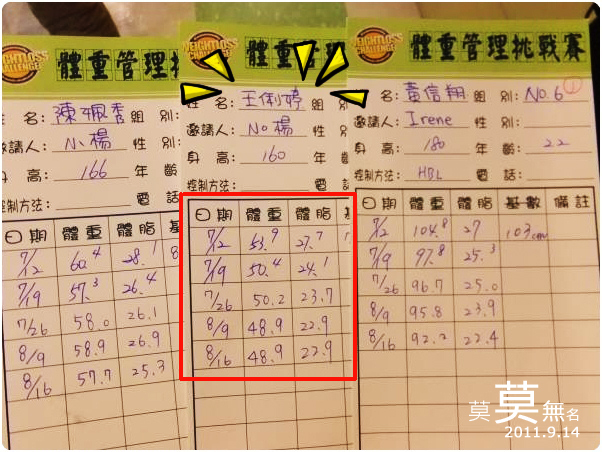 WEIGHT LOSS CHALLENGE
體重管理挑
姓 名: 陳珮秀 組 別:
邀請人: 小楊 性 別
身 高: 166 年 齡
控制方法: 電 話
日期 體重 體脂 基
7/12 60.4 28.1 8
7/19 57.3 26.4
7/26 58.0 26.1
8/9 58.9 26.9
8/16 57.7 25.3
WEIGHT LOSS CHALLENGE
體重管理
姓 名: 王俐婷 組 別
邀請人: No楊 性 別
身 高: 160 年 齡
控制方法: 電 話
日期 體重 體脂
7/12 53.9 27.7
7/19 50.4 24.1
7/26 50.2 23.7
8/9 48.9 22.9
8/16 48.9 22.9
WEIGHT LOSS CHALLENGE
體重管理挑戰賽
姓 名: 黃信翔 組 別: No.6 1
邀請人: Irene 性 別:
身 高: 180 年 齡: 22
控制方法: HBL 電 話:
日期 體重 體脂 基數 備註
7/12 104.8 27 103cm
7/19 97.8 25.3
7/26 96.7 25.0
8/9 95.8 23.9
8/16 92.2 22.4
莫莫無名
2011.9.14